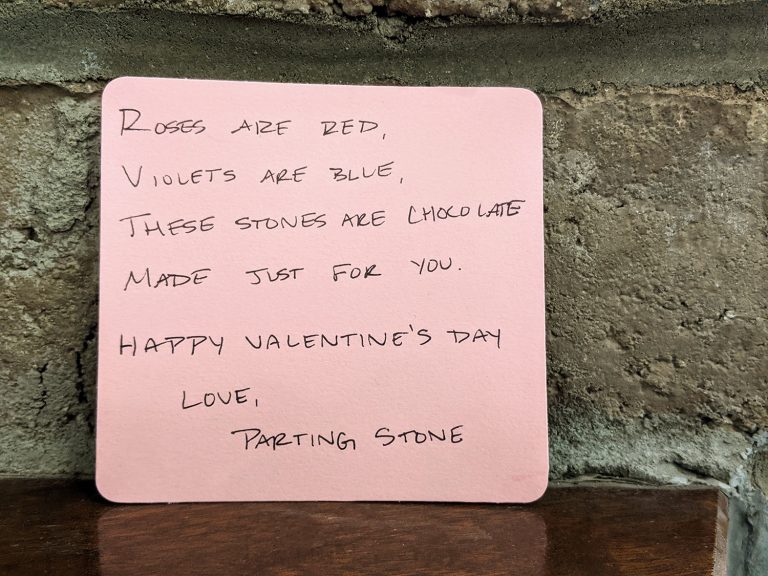 ROSES ARE RED,
VIOLETS ARE BLUE,
THESE STONES ARE CHOCOLATE
MADE JUST FOR YOU.
HAPPY VALENTINE'S DAY
LOVE,
PARTING STONE